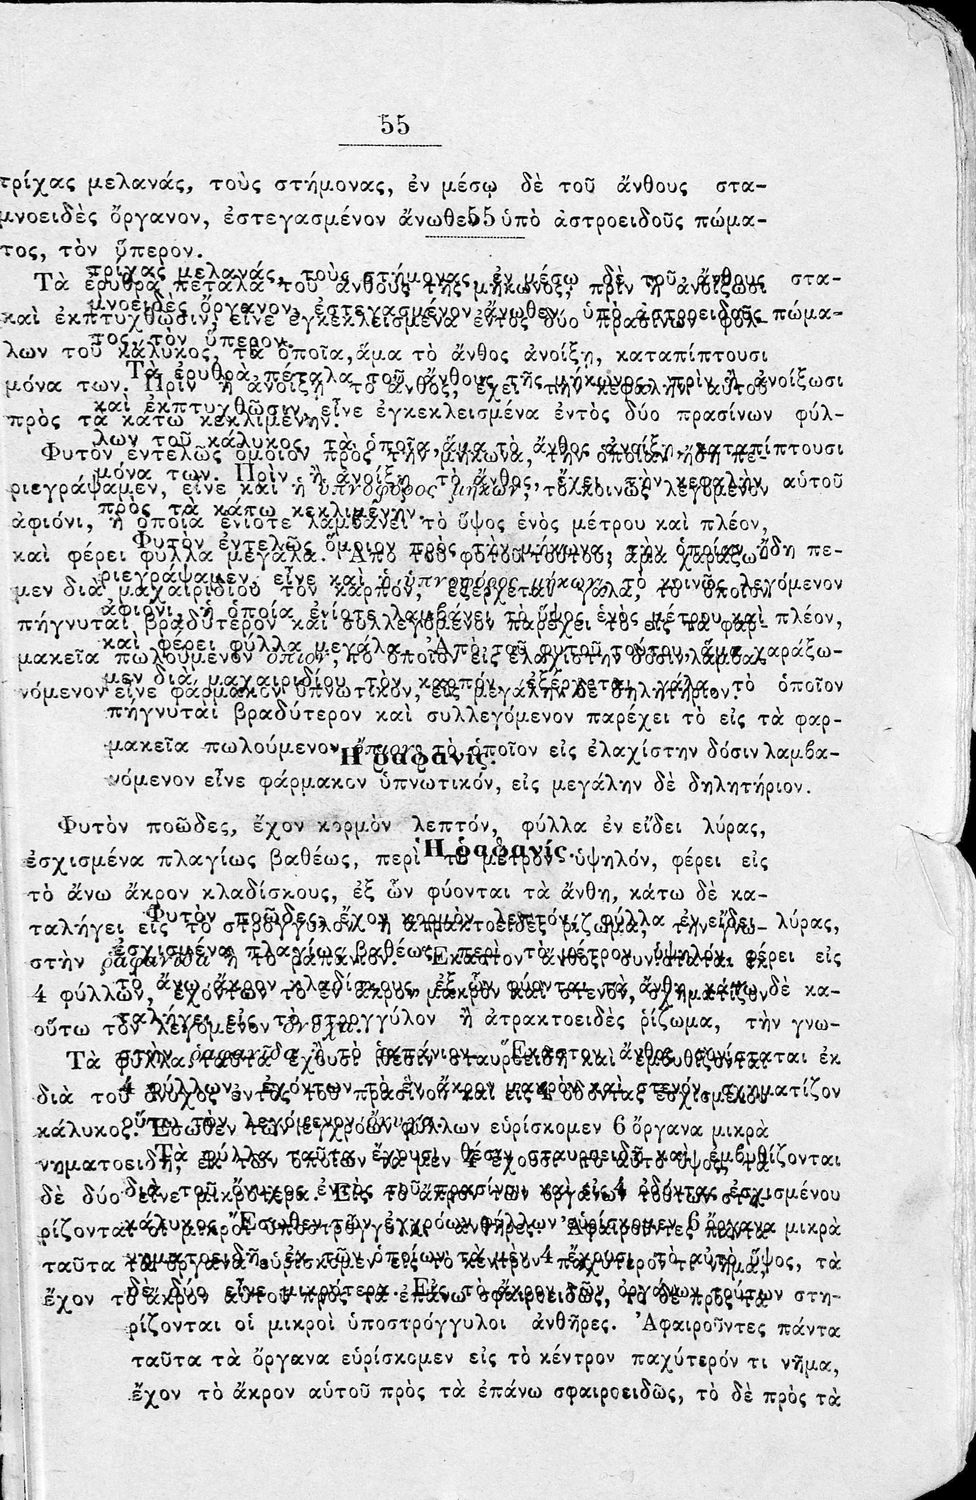 55
τρίχας μελανάς, τοὺς στήμονας, ἐν μέσῳ δὲ τοῦ ἄνθους στα-
μνοειδὲς ὄργανον, ἐστεγασμένον ἄνωθεν ὑπὸ ἀστροειδοῦς πώμα-
τος, τὸν ὕπερον.
Τὰ ἐρυθρὰ πέταλα τοῦ ἄνθους τῆς μήκωνος, πρὶν ἢ ἀνοίξωσι
καὶ ἐκπτυχθῶσιν, εἶνε ἐγκεκλεισμένα ἐντὸς δύο πρασίνων φύλ-
λων τοῦ κάλυκος, τὰ ὁποῖα, ἅμα τὸ ἄνθος ἀνοίξῃ, καταπίπτουσι
μόνα των. Πρὶν ἢ ἀνοίξῃ τὸ ἄνθος, ἔχει τὴν κεφαλὴν αὐτοῦ
πρὸς τὰ κάτω κεκλιμένην.
Φυτὸν ἐντελῶς ὅμοιον πρὸς τὴν μήκωνα, τὴν ὁποίαν ἤδη πε-
ριεγράψαμεν, εἶνε καὶ ἡ ὑπνοφόρος μήκων, τὸ κοινῶς λεγόμενον
ἀφιόνι, ἡ ὁποία ἐνίοτε λαμβάνει τὸ ὕψος ἑνὸς μέτρου καὶ πλέον,
καὶ φέρει φύλλα μεγάλα. Ἀπὸ τοῦ φυτοῦ τούτου, ἅμα χαράξω-
μεν διὰ μαχαιριδίου τὸν καρπόν, ἐξέρχεται γάλα, τὸ ὁποῖον
πήγνυται βραδύτερον καὶ συλλεγόμενον παρέχει τὸ εἰς τὰ φαρ-
μακεῖα πωλούμενον ὄπιον, τὸ ὁποῖον εἰς ἐλαχίστην δόσιν λαμβα-
νόμενον εἶνε φάρμακον ὑπνωτικόν, εἰς μεγάλην δὲ δηλητήριον.
Ἡ ῥαφανίς.
Φυτὸν ποῶδες, ἔχον κορμὸν λεπτόν, φύλλα ἐν εἴδει λύρας,
ἐσχισμένα πλαγίως βαθέως, περὶ τὸ μέτρον ὑψηλόν, φέρει εἰς
τὸ ἄνω ἄκρον κλαδίσκους, ἐξ ὧν φύονται τὰ ἄνθη, κάτω δὲ κα-
ταλήγει εἰς τὸ στρογγύλον ἢ ἀτρακτοειδὲς ῥίζωμα, τὴν γνω-
στὴν ῥαφανῖδα ἢ τὸ ῥαπάνιον. Ἕκαστον ἄνθος συνίσταται ἐκ
4 φύλλων, ἐχόντων τὸ ἓν ἄκρον μακρὸν καὶ στενόν, σχηματίζον
οὕτω τὸν λεγόμενον ὄνυχα.
Τὰ φύλλα ταῦτα ἔχουσι θέσιν σταυροειδῆ καὶ ἐμβυθίζονται
διὰ τοῦ ὄνυχος ἐντὸς τοῦ πρασίνου καὶ εἰς 4 ὀδόντας ἐσχισμένου
κάλυκος. Ἔσωθεν τῶν ἐγχρόων φύλλων εὑρίσκομεν 6 ὄργανα μικρὰ
νηματοειδῆ, ἐκ τῶν ὁποίων τὰ μὲν 4 ἔχουσι τὸ αὐτὸ ὕψος, τὰ
δὲ δύο εἶνε μικρότερα. Εἰς τὸ ἄκρον τῶν ὀργάνων τούτων στη-
ρίζονται οἱ μικροὶ ὑποστρόγγυλοι ἀνθῆρες. Ἀφαιροῦντες πάντα
ταῦτα τὰ ὄργανα εὑρίσκομεν εἰς τὸ κέντρον παχύτερόν τι νῆμα,
ἔχον τὸ ἄκρον αὐτοῦ πρὸς τὰ ἐπάνω σφαιροειδῶς, τὸ δὲ πρὸς τὰ